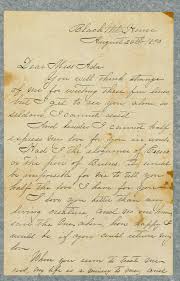 Black Mt. House
August 20th 18
Dear Miss Ida
You will think strange
of me for writing these few lines
but I get to see you alone so
seldom I cannot resist
And besides I cannot half
express my love for you in words
Had I the eloquence of
or the pen of Burns, it would
be impossible for me to tell you
half the love I have for you
I love you better than any
living creature and no one
but the
would be if you could return my
love
When you seem to treat me
cool, my life is a misery to me, and